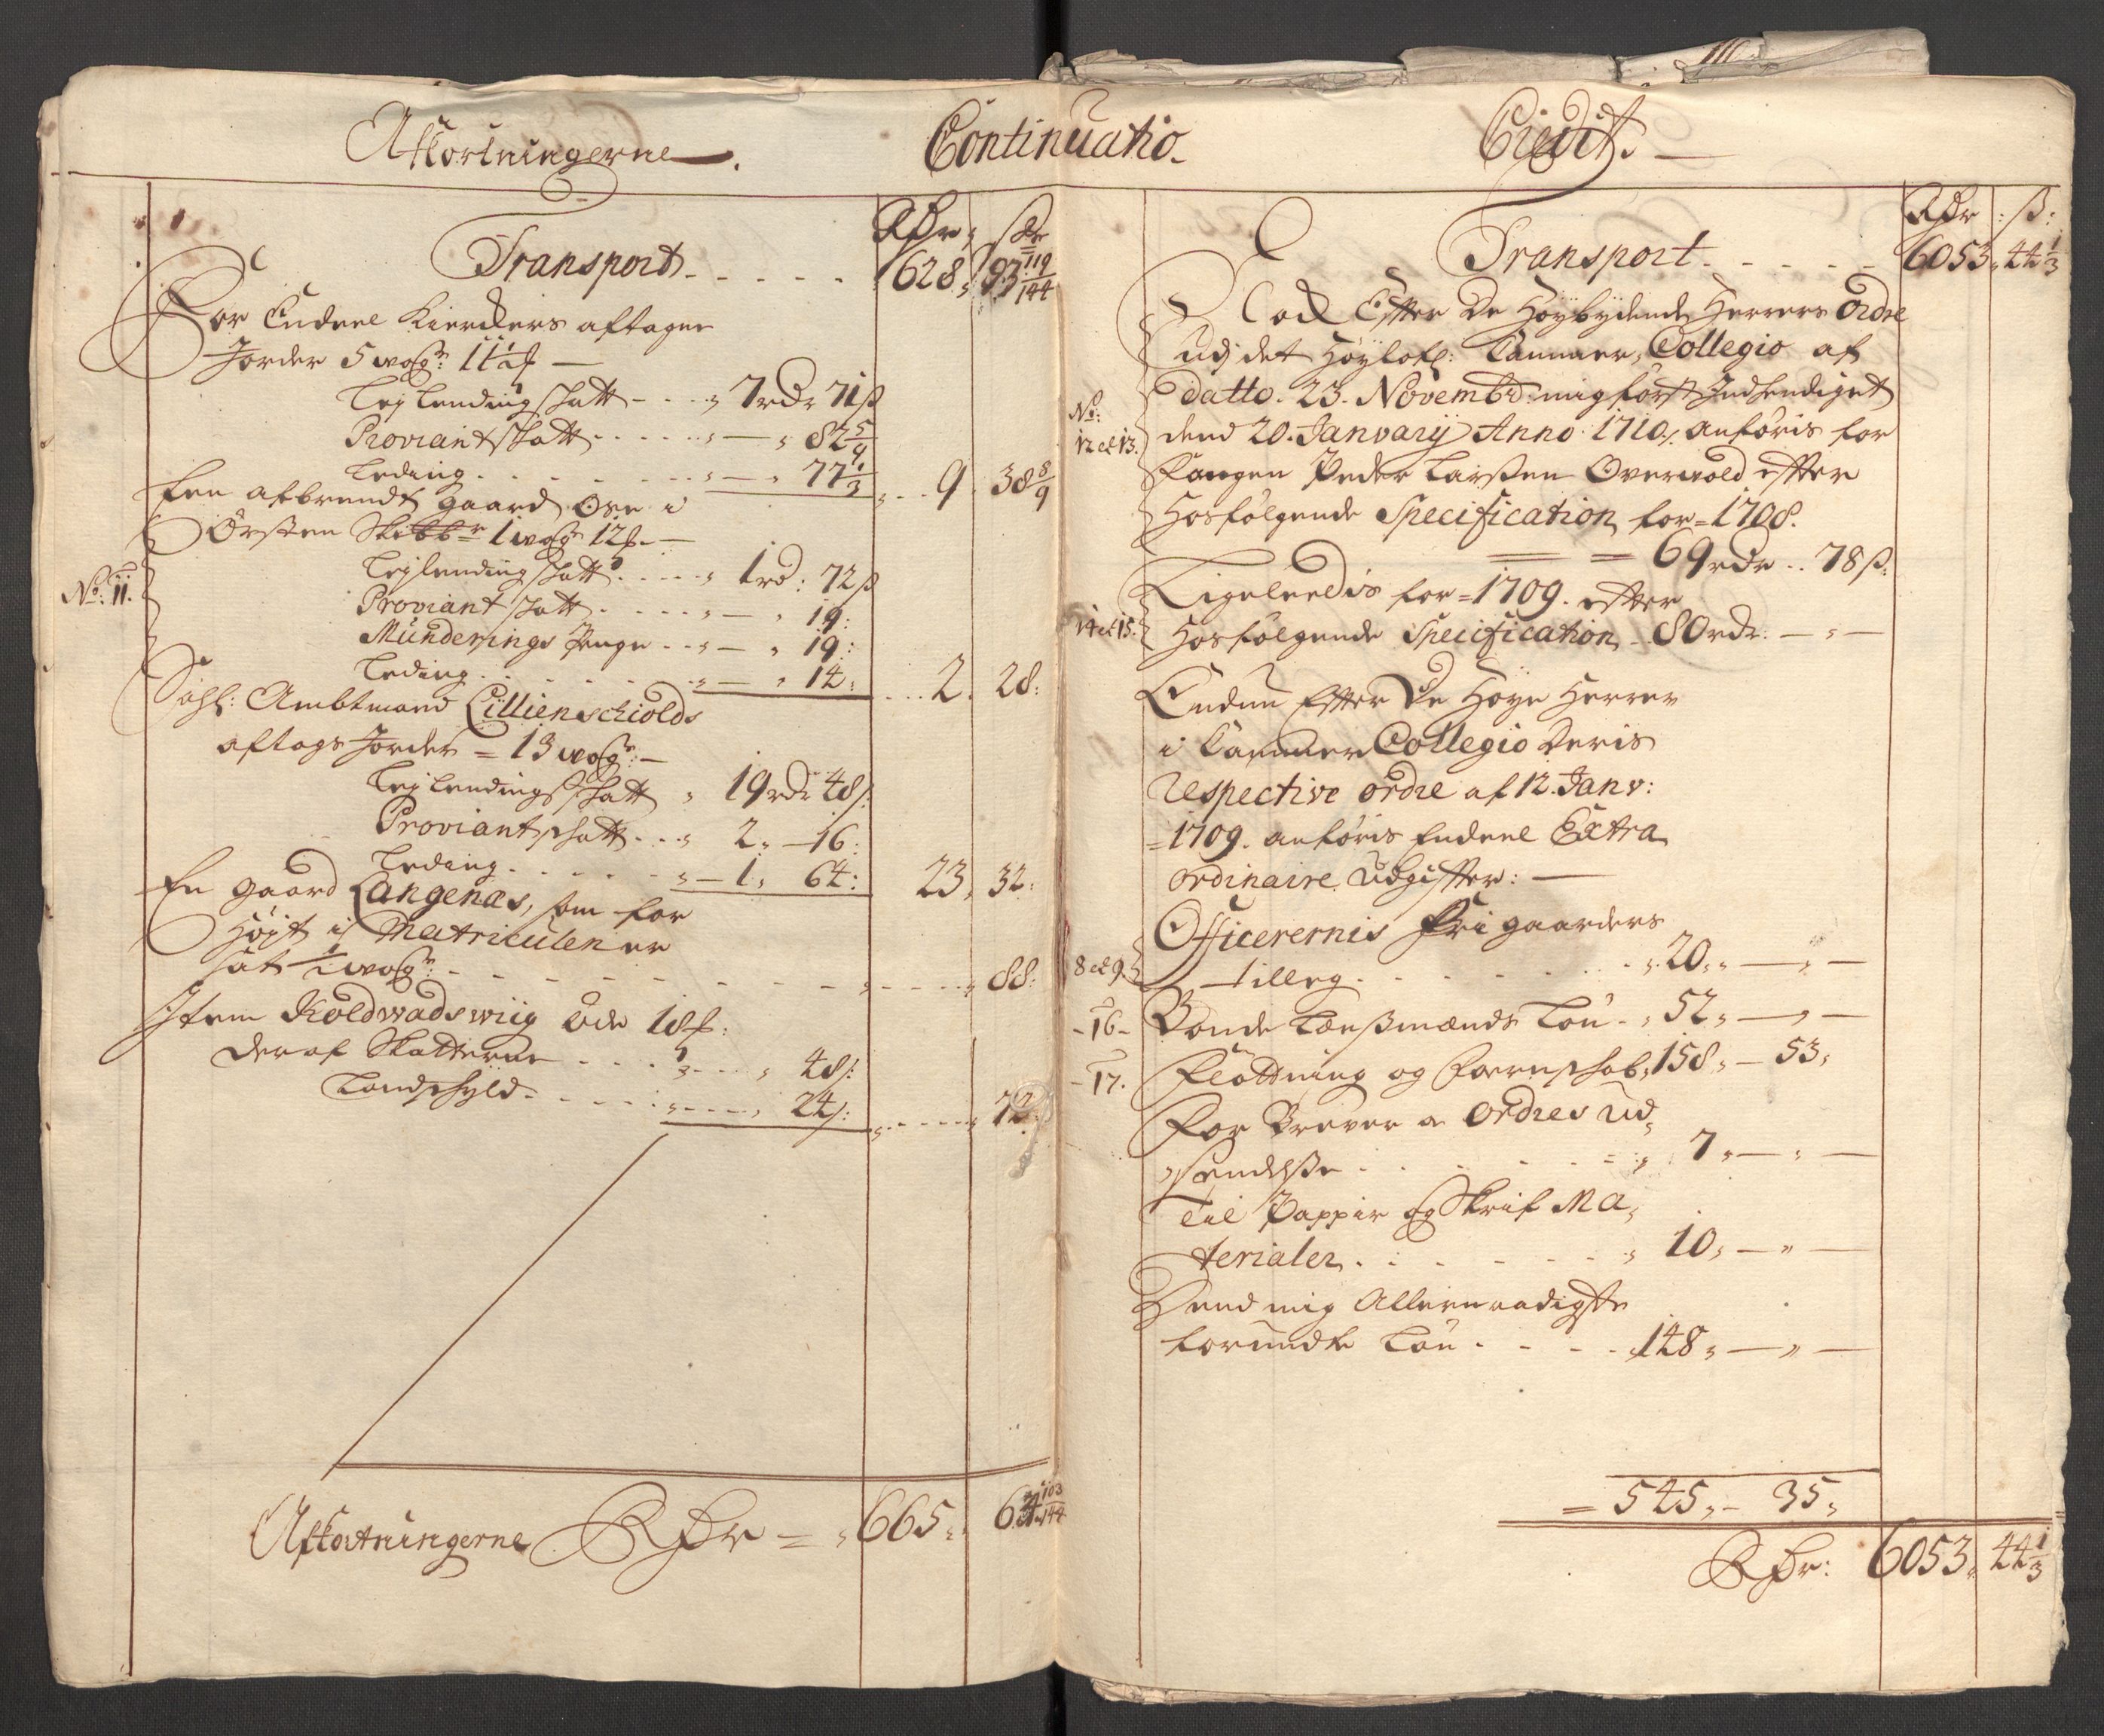 Afkortningerne.
Continuatio
Credit
Rdr ß
Transport - - - - - 628 93 119/144
For Endeel Kierckers aftagne
Jorder 5 wog: 11 1/2 f —
Lejlendingschatt - - - 7 rdr 71 ß
Proviantschatt - - - - „ — „ 82 5/9
Leding - - - - - „ — „ 77 1/3 - - 9 38 8/9
Een afbrendt gaard Ose i
Ørsten Skibbr 1 wog 12 f. —
Lejlendingschatt - - - - 1 rd: 72 ß
No: 11.
Proviantschatt - - - - „ — „ 19:
Munderings Penge - - „ — „ 19:
Leding - - - - - „ — „ 14: - - 2. 28:
Sahl: Ambtmand Lillienschiolds
aftags Jorder = 13 wog: —
Lejlendingsschatt „ 19 rdr 48 ß:
Proviantschatt - - „ 2 „ — 16:
Leding - - - - - „ — 1 „ 64: 23 „ 32:
En gaard Langenæs, som for
Højt i Matriculen er
sat 1/2 wog: - - - - - - - - - 88:
Item Koldwadswiig Øde 18 f:
Deraf Skatterne - - - „ - - „ 48 ß:
Landschyld - - - - - „ - - „ 24 ß: - - - 72:
Afkortningerne Rdr = „ 665 „ 64 103/144
Rdr : ß:
Transport - - - - - 6053 „ 44 1/3
Nock Efter De Høybydende Herrers Ordre
udj det Høylofl: Cammer Collegio af
Datto. 23. Novembr: mig først Indhendiget
No: 12 et 13.
dend 20. Janvarij Anno 1710, anføris for
Fangen Peder Larßen Overvold efter
Hosfølgende Specification for = 1708.
= = 69 rdr .. 78 ß:
Ligeleedis for = 1709. efter
14 et 15.
Hosfølgende Specification - 80 rdr: — „ —
Endnu Efter De Høye Herrer
i Cammer Collegio Deris
Respective ordre af 12. Janv:
= 1709. anføris Endeel Extra
ordinaire Udgifter: —
Officerernis Frigaarders
8 et 9.
tilleg - - - - - - - „ 20 „ — „ —
- 16 -
Bonde Lænßmænds Løn - „ 52 „ — „ —
- 17.
Fløttning og Førrschab „ 158 „ — 53 „
For Brever a Ordres ud„
sendelße - - - - - „ 7 „ — „ —
Til Pappir og Skrif Ma„
terialer - - - - - „ 10 „ — „ —
Dend mig Allernaadigste
forundte Løn - - - - 148 „ — „ —
= 545 „ — 35 „
Rdr: 6053 „ 44 1/3